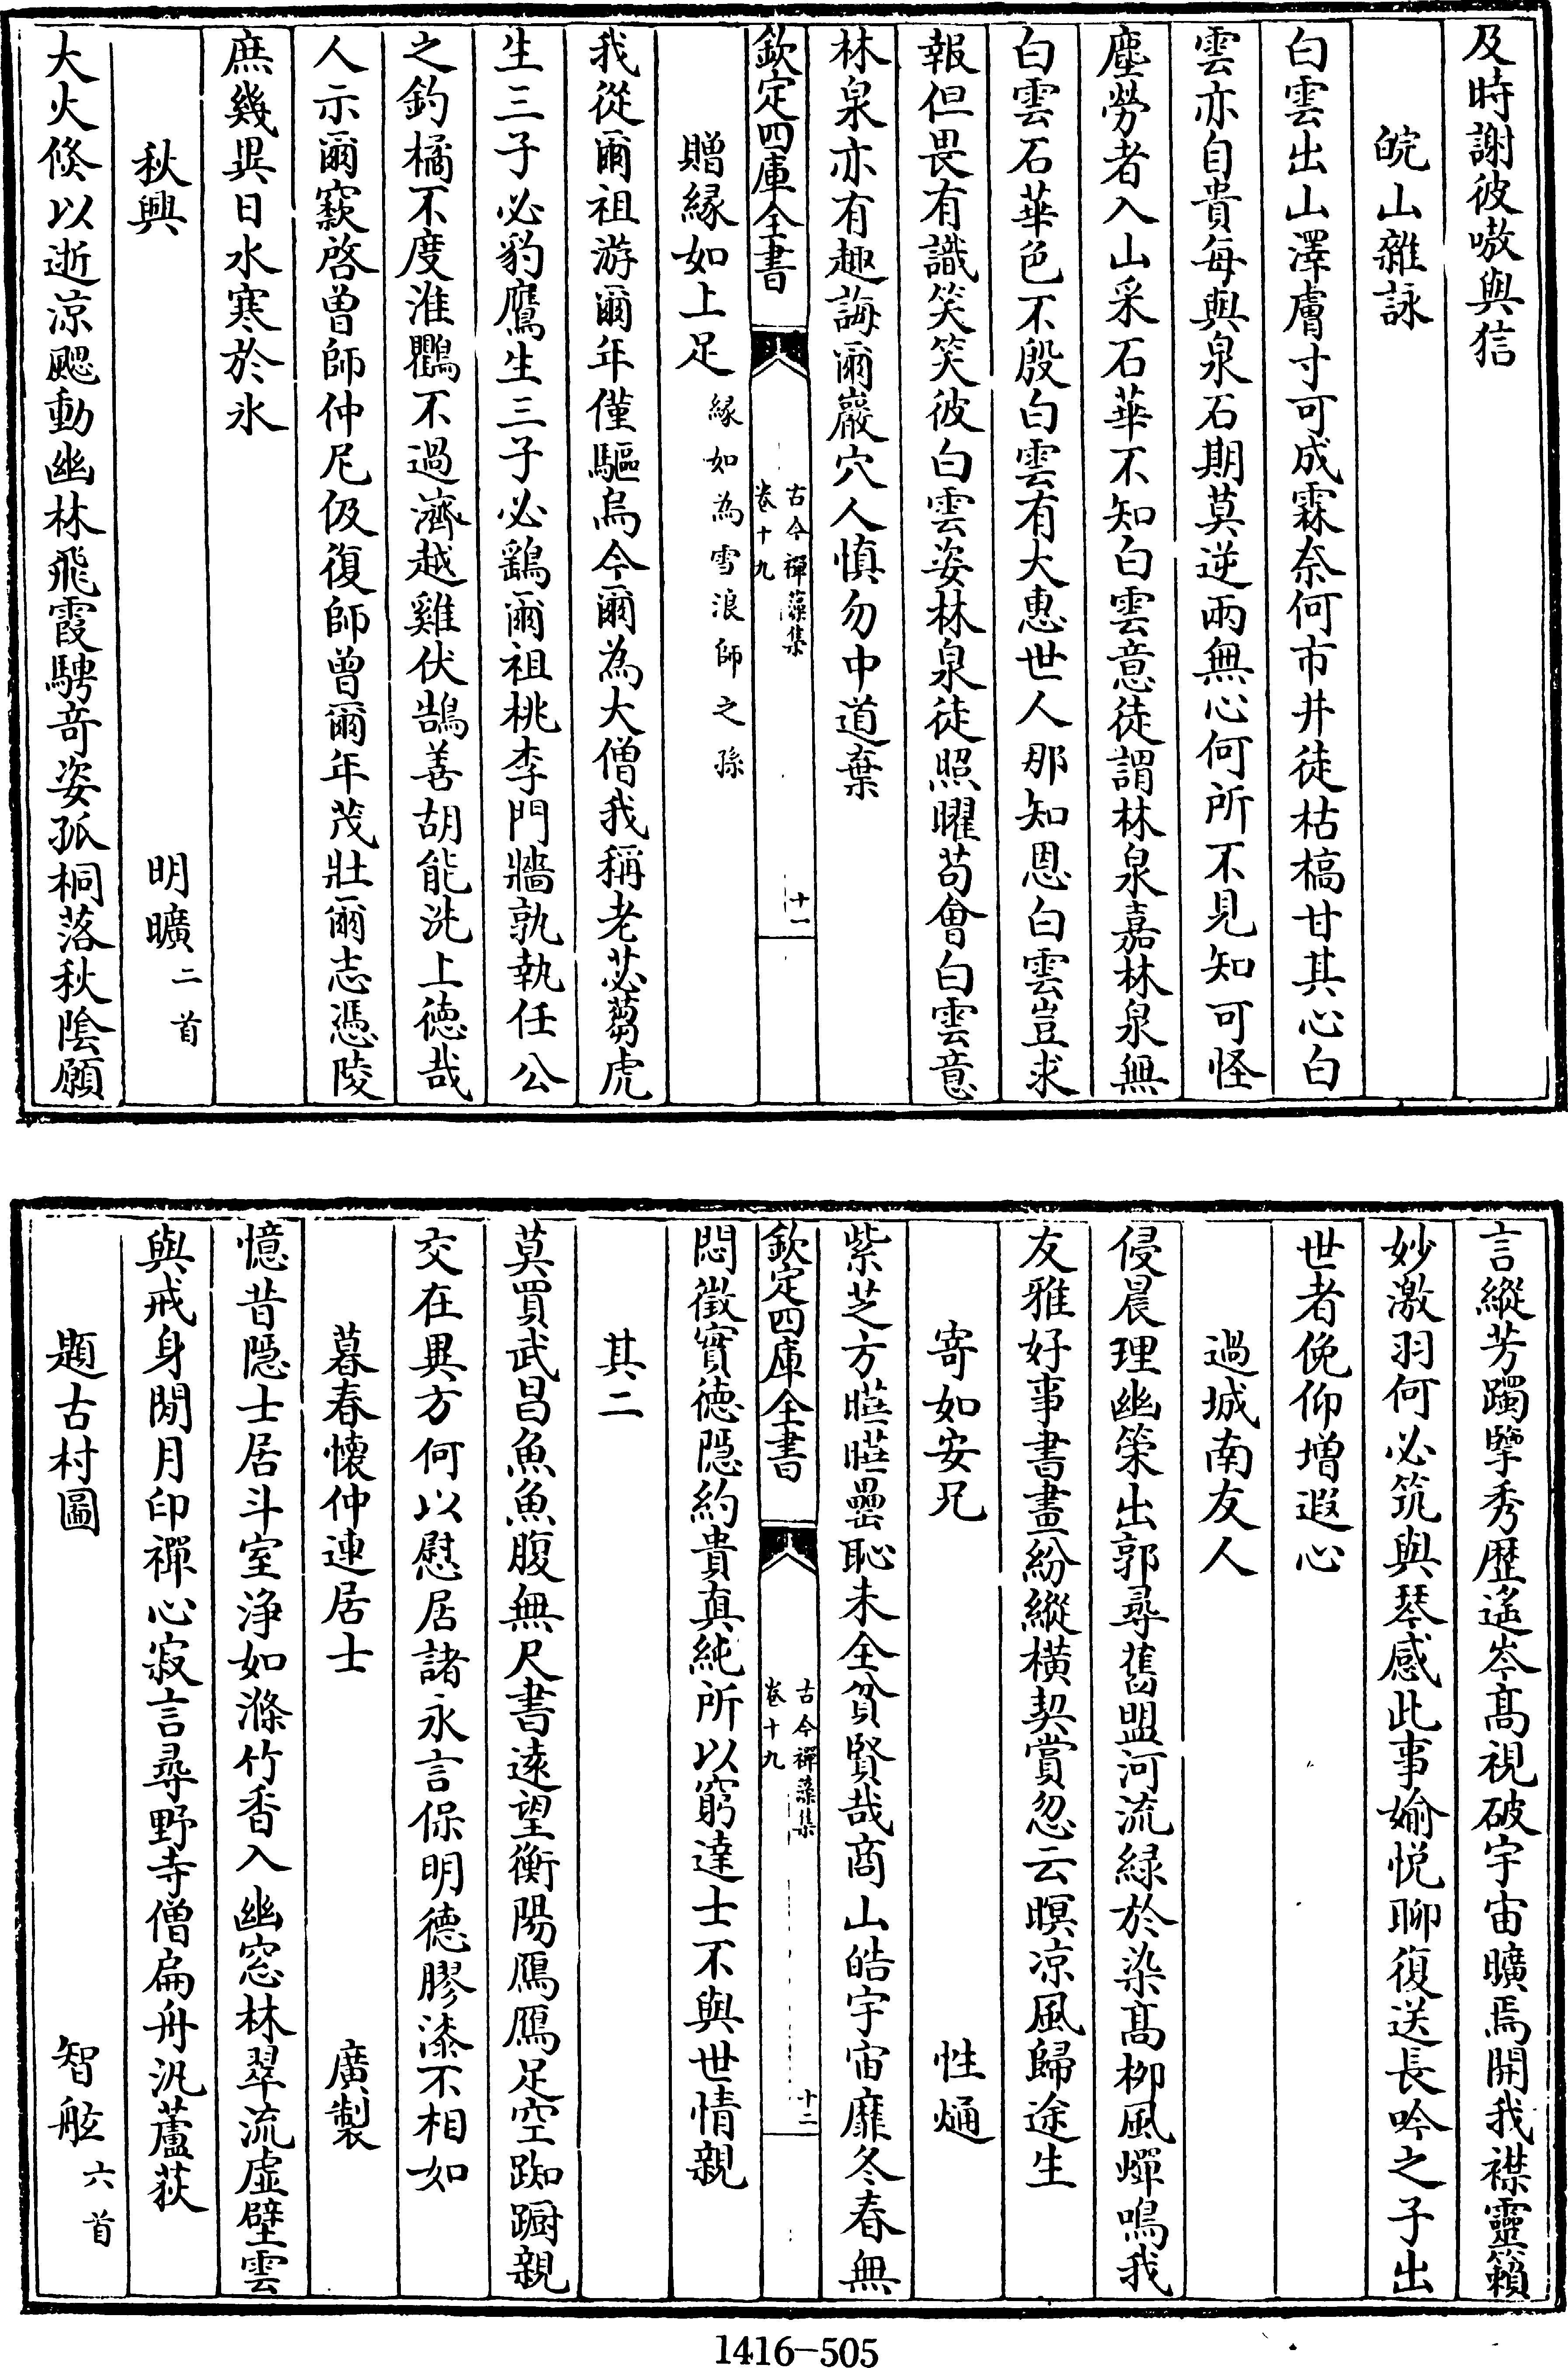 及時謝彼嗷與狺
皖山雜詠
白雲出山澤膚寸可成霖奈何市井徒枯槁甘其心白
雲亦自貴每與泉石期莫逆兩無心何所不見知可怪
塵勞者入山采石華不知白雲意徒謂林泉嘉林泉無
白雲石華色不殷白雲有大惠世人那知恩白雲豈求
報但畏有識笑笑彼白雲姿林泉徒照曜苟會白雲意
林泉亦有趣誨爾巖穴人慎勿中道棄
欽定四庫全書
古今禪藻集
卷十九
十一
贈縁如上足縁如為雪浪師之孫
我從爾祖游爾年僅驅烏今爾為大僧我稱老苾蒭虎
生三子必豹鷹生三子必鷂爾祖桃李門牆孰執任公
之釣橘不度淮鸜不過濟越雞伏鵠善胡能洗上徳哉
人示爾窾啓曾師仲尼伋復師曾爾年茂壯爾志憑陵
庶幾異日水寒於氷
秋興
明曠二首
大火倐以逝凉颸動幽林飛霞騁竒姿孤桐落秋隂願
言縱芳躅擥秀歴遙岑髙視破宇宙曠焉開我襟靈籟
妙激羽何必筑與琴感此事婾悦聊復送長吟之子出
世者俛仰増遐心
過城南友人
侵晨理幽策出郭尋舊盟河流緑於染髙栁風蟬鳴我
友雅好事書畫紛縱橫契賞忽云暝凉風歸途生
寄如安兄
性㷁
紫芝方曄曄罍恥未全貧賢哉商山皓宇宙靡冬春無
欽定四庫全書
古今禪藻集
卷十九
十二
悶徴實徳隱約貴真純所以窮達士不與世情親
其二
莫買武昌魚魚腹無尺書逺望衡陽鴈鴈足空踟蹰親
交在異方何以慰居諸永言保明德膠漆不相如
暮春懐仲連居士
廣製
憶昔隠士居斗室浄如滌竹香入幽窓林翠流虚壁雲
與戒身閒月印禪心寂言尋野寺僧扁舟汎蘆荻
題古村圖
智舷六首
1416-505